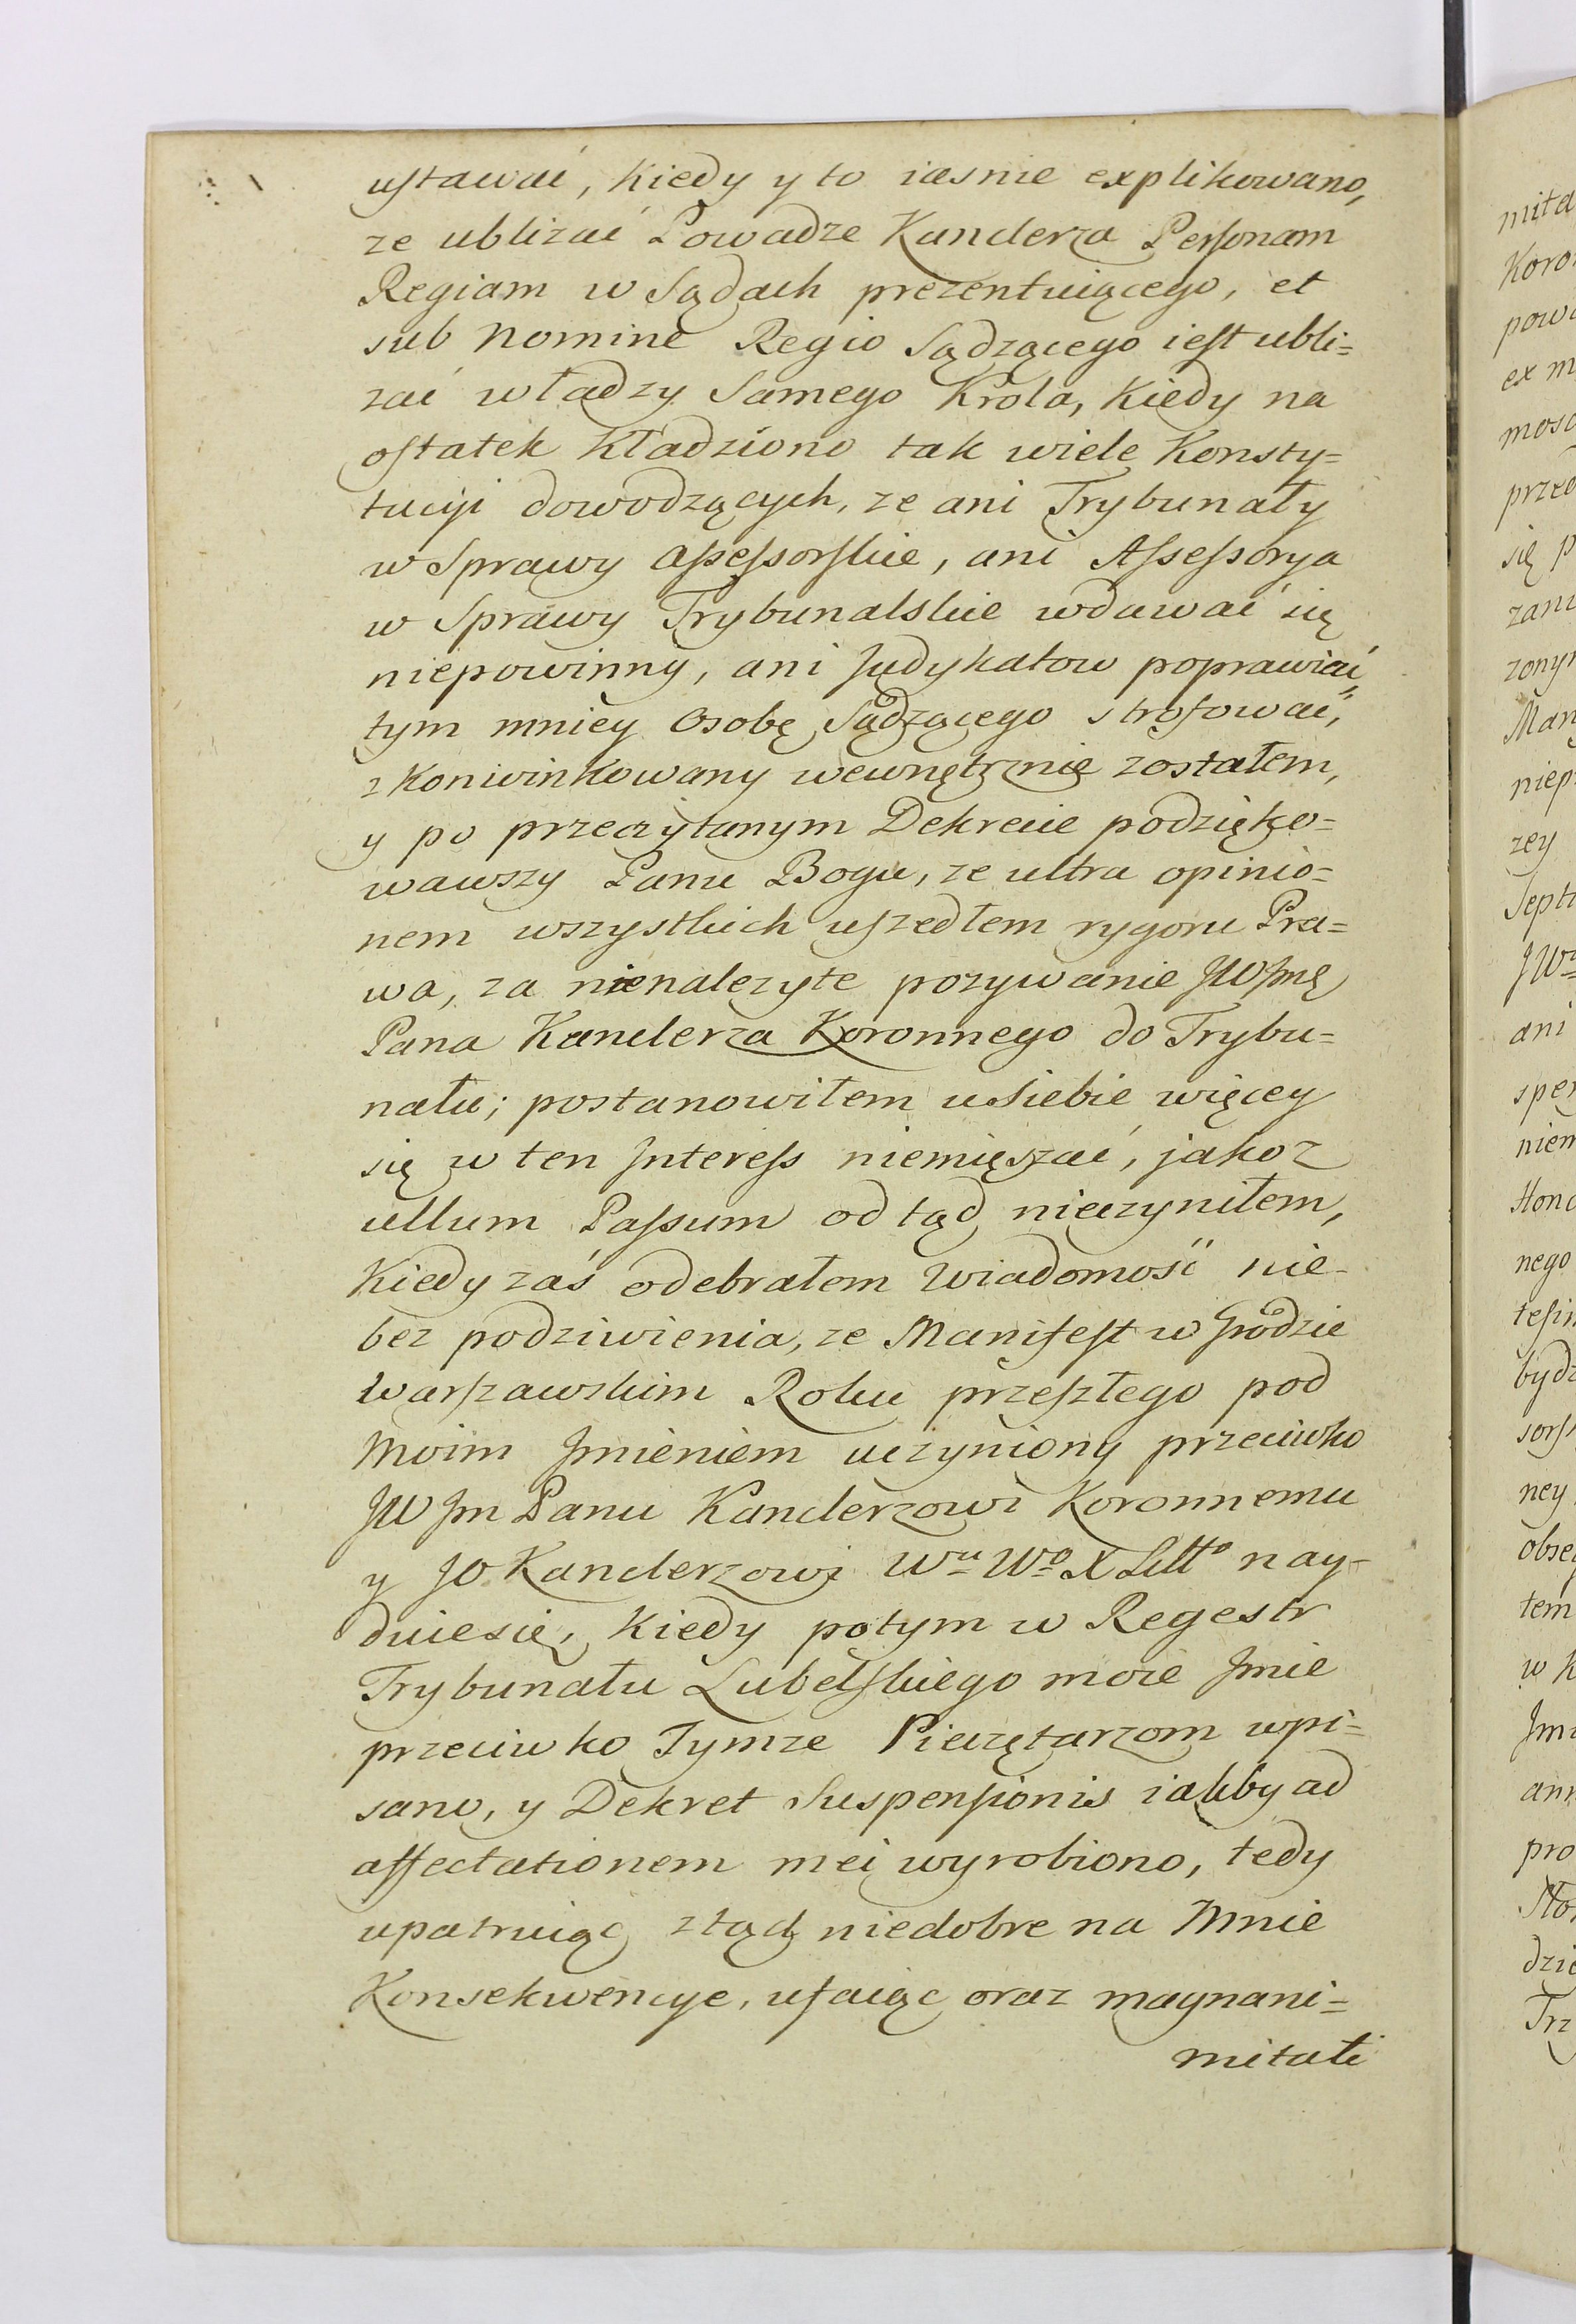 ustawać, Kiedy y to iasnie explikowano,
ze ublizać Powadze Kanclerza Personam
Regiam w Sądach prezentuiącego, et
sub Nomine Regio Sądzącego iest ubli=
zać władzy Samego Krola, Kiedy na
ostatek Kładziono tak wiele Konsty=
tucyi dowodzących, ze ani Trybunały
w Sprawy Assessorskie, ani Assessorya
w Sprawy Trybunalskie wdawać się
niepowinny, ani Judykatow poprawiać,
tym mniey Osobę Sądzącego strofować,
zkonwinkowany wewnętrznie zostałem,
y po przeczytanym Dekrecie podzięko=
wawszy Panu Bogu, ze ultra opinio=
nem wszystkich uszedłem rygoru Pra=
wa, za nienalezyte pozywanie JWJmę
Pana Kanclerza Koronnego do Trybu=
nału; postanowiłem u siebie więcey
się w ten Interess niemięszać, jakoz
ullum Passum od tąd nieczyniłem,
Kiedy zaś odebrałem Wiadomość nie-
bez podziwienia, ze Manifest w Grodzie
Warszawskim Roku przeszłego pod
Moim Jmieniem uczyniony przeciwko
JW Jm Panu Kanclerzowi Koronnemu
y JO Kanclerzowi Wu Wo X Littо nay-
duiesię, Kiedy potym w Regestr
Trybunału Lubelskiego moie Jmie
przeciwko Tymze Pieczętarzom wpi=
sano, y Dekret Suspensionis iakby ad
affectationem mei wyrobiono, tedy
upatruiąc ztąd niedobre na Mnie
Konsekwencye, ufaiąc oraz magnani=
mitati
mita
Koro
powa
ex m
mosc
przed
się p
zani
zony
Man
niep
zey
Septi
JWu
ani
sper
niem
Hono
nego
bydz
ney
obse
tem
w K
Jmi
ann
pro
dzie
Trz